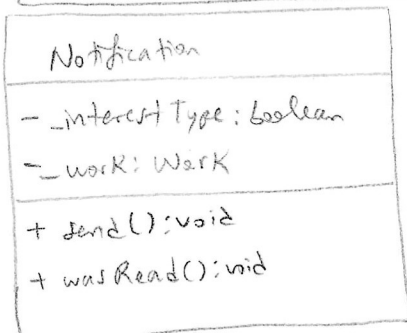 Notification
- _interestType: boolean
- _work: Work
+ send(): void
+ wasRead(): void